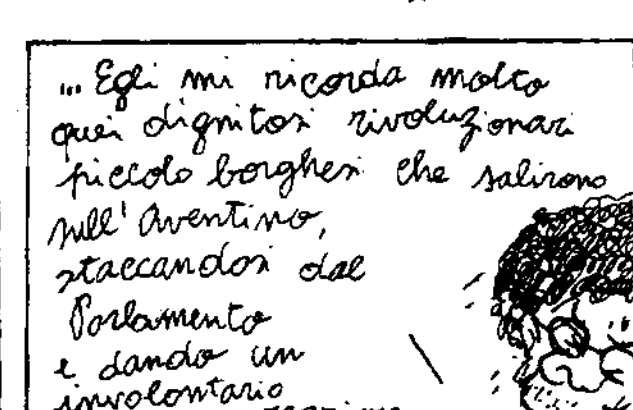 ... Egli mi ricorda molto
quei dignitosi rivoluzionari
piccolo borghesi che salirono
sull'Aventino,
staccandosi dal
Parlamento
e dando un
involontario